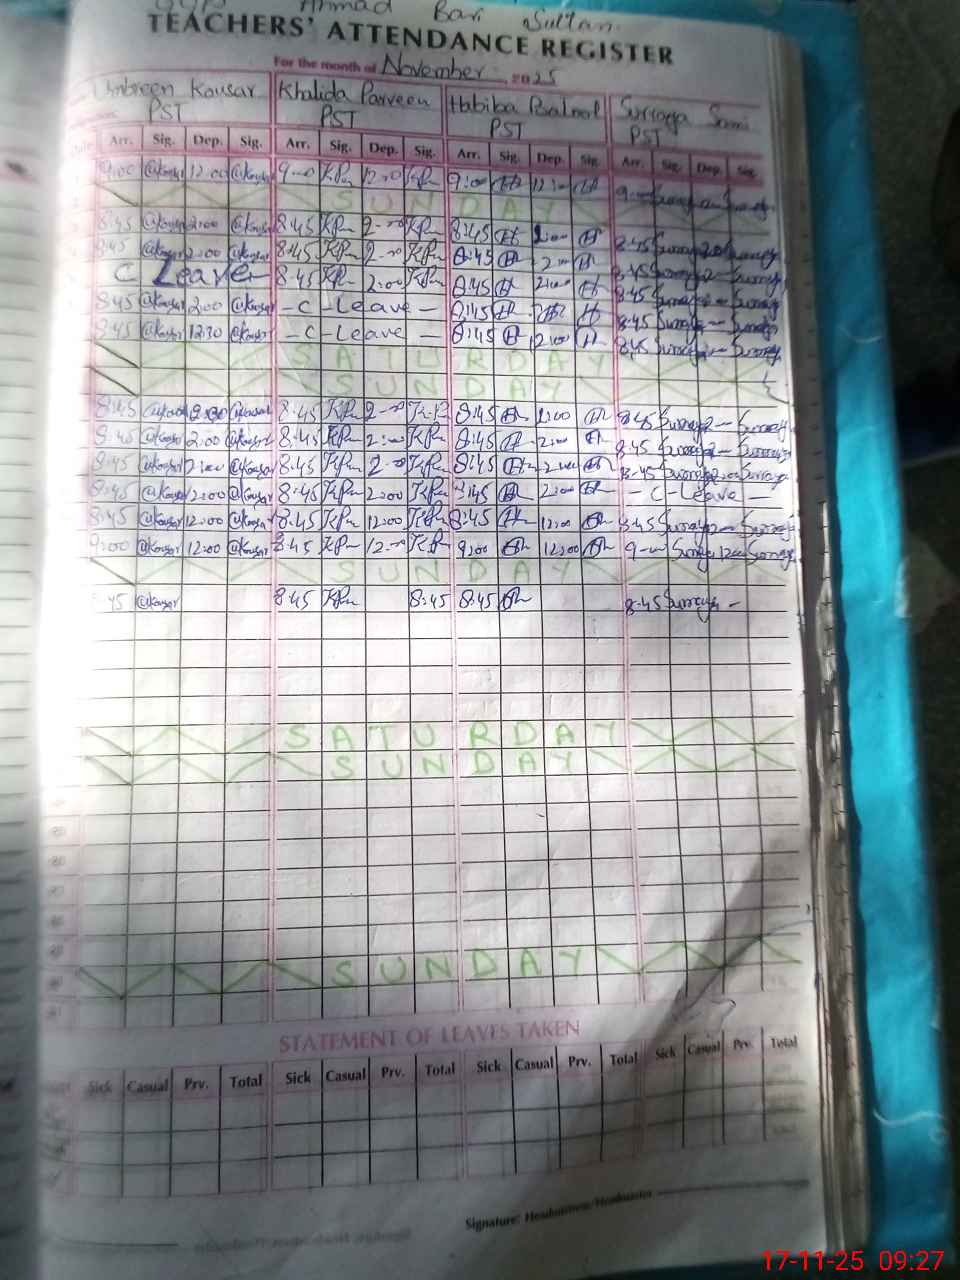 Ahmad Bari Sultan
TEACHERS' ATTENDANCE REGISTER
For the month of November, 2025
Umbreen Kousar Khalida Parveen Habiba Surraya Sami
PST PST PST PST
Arr. Sig. Dep. Sig. Arr. Sig. Dep. Sig. Arr. Sig. Dep. Sig. Arr. Sig. Dep. Sig.
9:00 @Kousar 12:00 @Kousar 9-00 KPn 12-00 KPn 9:00 12:00 9-00 Surraya Surraya
SUNDAY
8:45 @Kousar 2:00 @Kousar 8:45 KPn 2-00 KPn 8:45 2:00 8:45 Surraya Surraya
8:45 @Kousar 2:00 @Kousar 8:45 KPn 2-00 KPn 8:45 2:00 8:45 Surraya 2- Surraya
C Leave 8:45 KPn 2:00 KPn 8:45 2:00 8:45 Surraya Surraya
8:45 @Kousar 2:00 @Kousar - C - Leave - 8:45 8:45 Surraya Surraya
8:45 @Kousar 12:30 @Kousar - C - Leave - 8:45 12:00 8:45 Surraya Surraya
SATURDAY
SUNDAY
8:45 @Kousar 2:00 @Kousar 8:45 KPn 2-00 KPn 8:45 2:00 8:45 Surraya 2- Surraya
8:45 @Kousar 2:00 @Kousar 8:45 KPn 2:00 KPn 8:45 2:00 8:45 Surraya 2- Surraya
8:45 @Kousar 2:00 @Kousar 8:45 KPn 2-00 KPn 8:45 2:00 8:45 Surraya 2:00 Surraya
8:45 @Kousar 2:00 @Kousar 8:45 KPn 2:00 KPn 8:45 2:00 - C - Leave -
8:45 @Kousar 12:00 @Kousar 8:45 KPn 12:00 KPn 8:45 12:00 8:45 Surraya 12- Surraya
9:00 @Kousar 12:00 @Kousar 8:45 KPn 12-00 KPn 9:00 12:00 9-00 Surraya 12- Surraya
SUNDAY
:45 @Kousar 8:45 KPn 8:45 8:45 8:45 Surraya -
SATURDAY
SUNDAY
SUNDAY
STATEMENT OF LEAVES TAKEN
Sick Casual Prv. Total Sick Casual Prv. Total Sick Casual Prv. Total Sick Casual Prv. Total
Signature: Headmistress/Headmaster
17-11-25 09:27